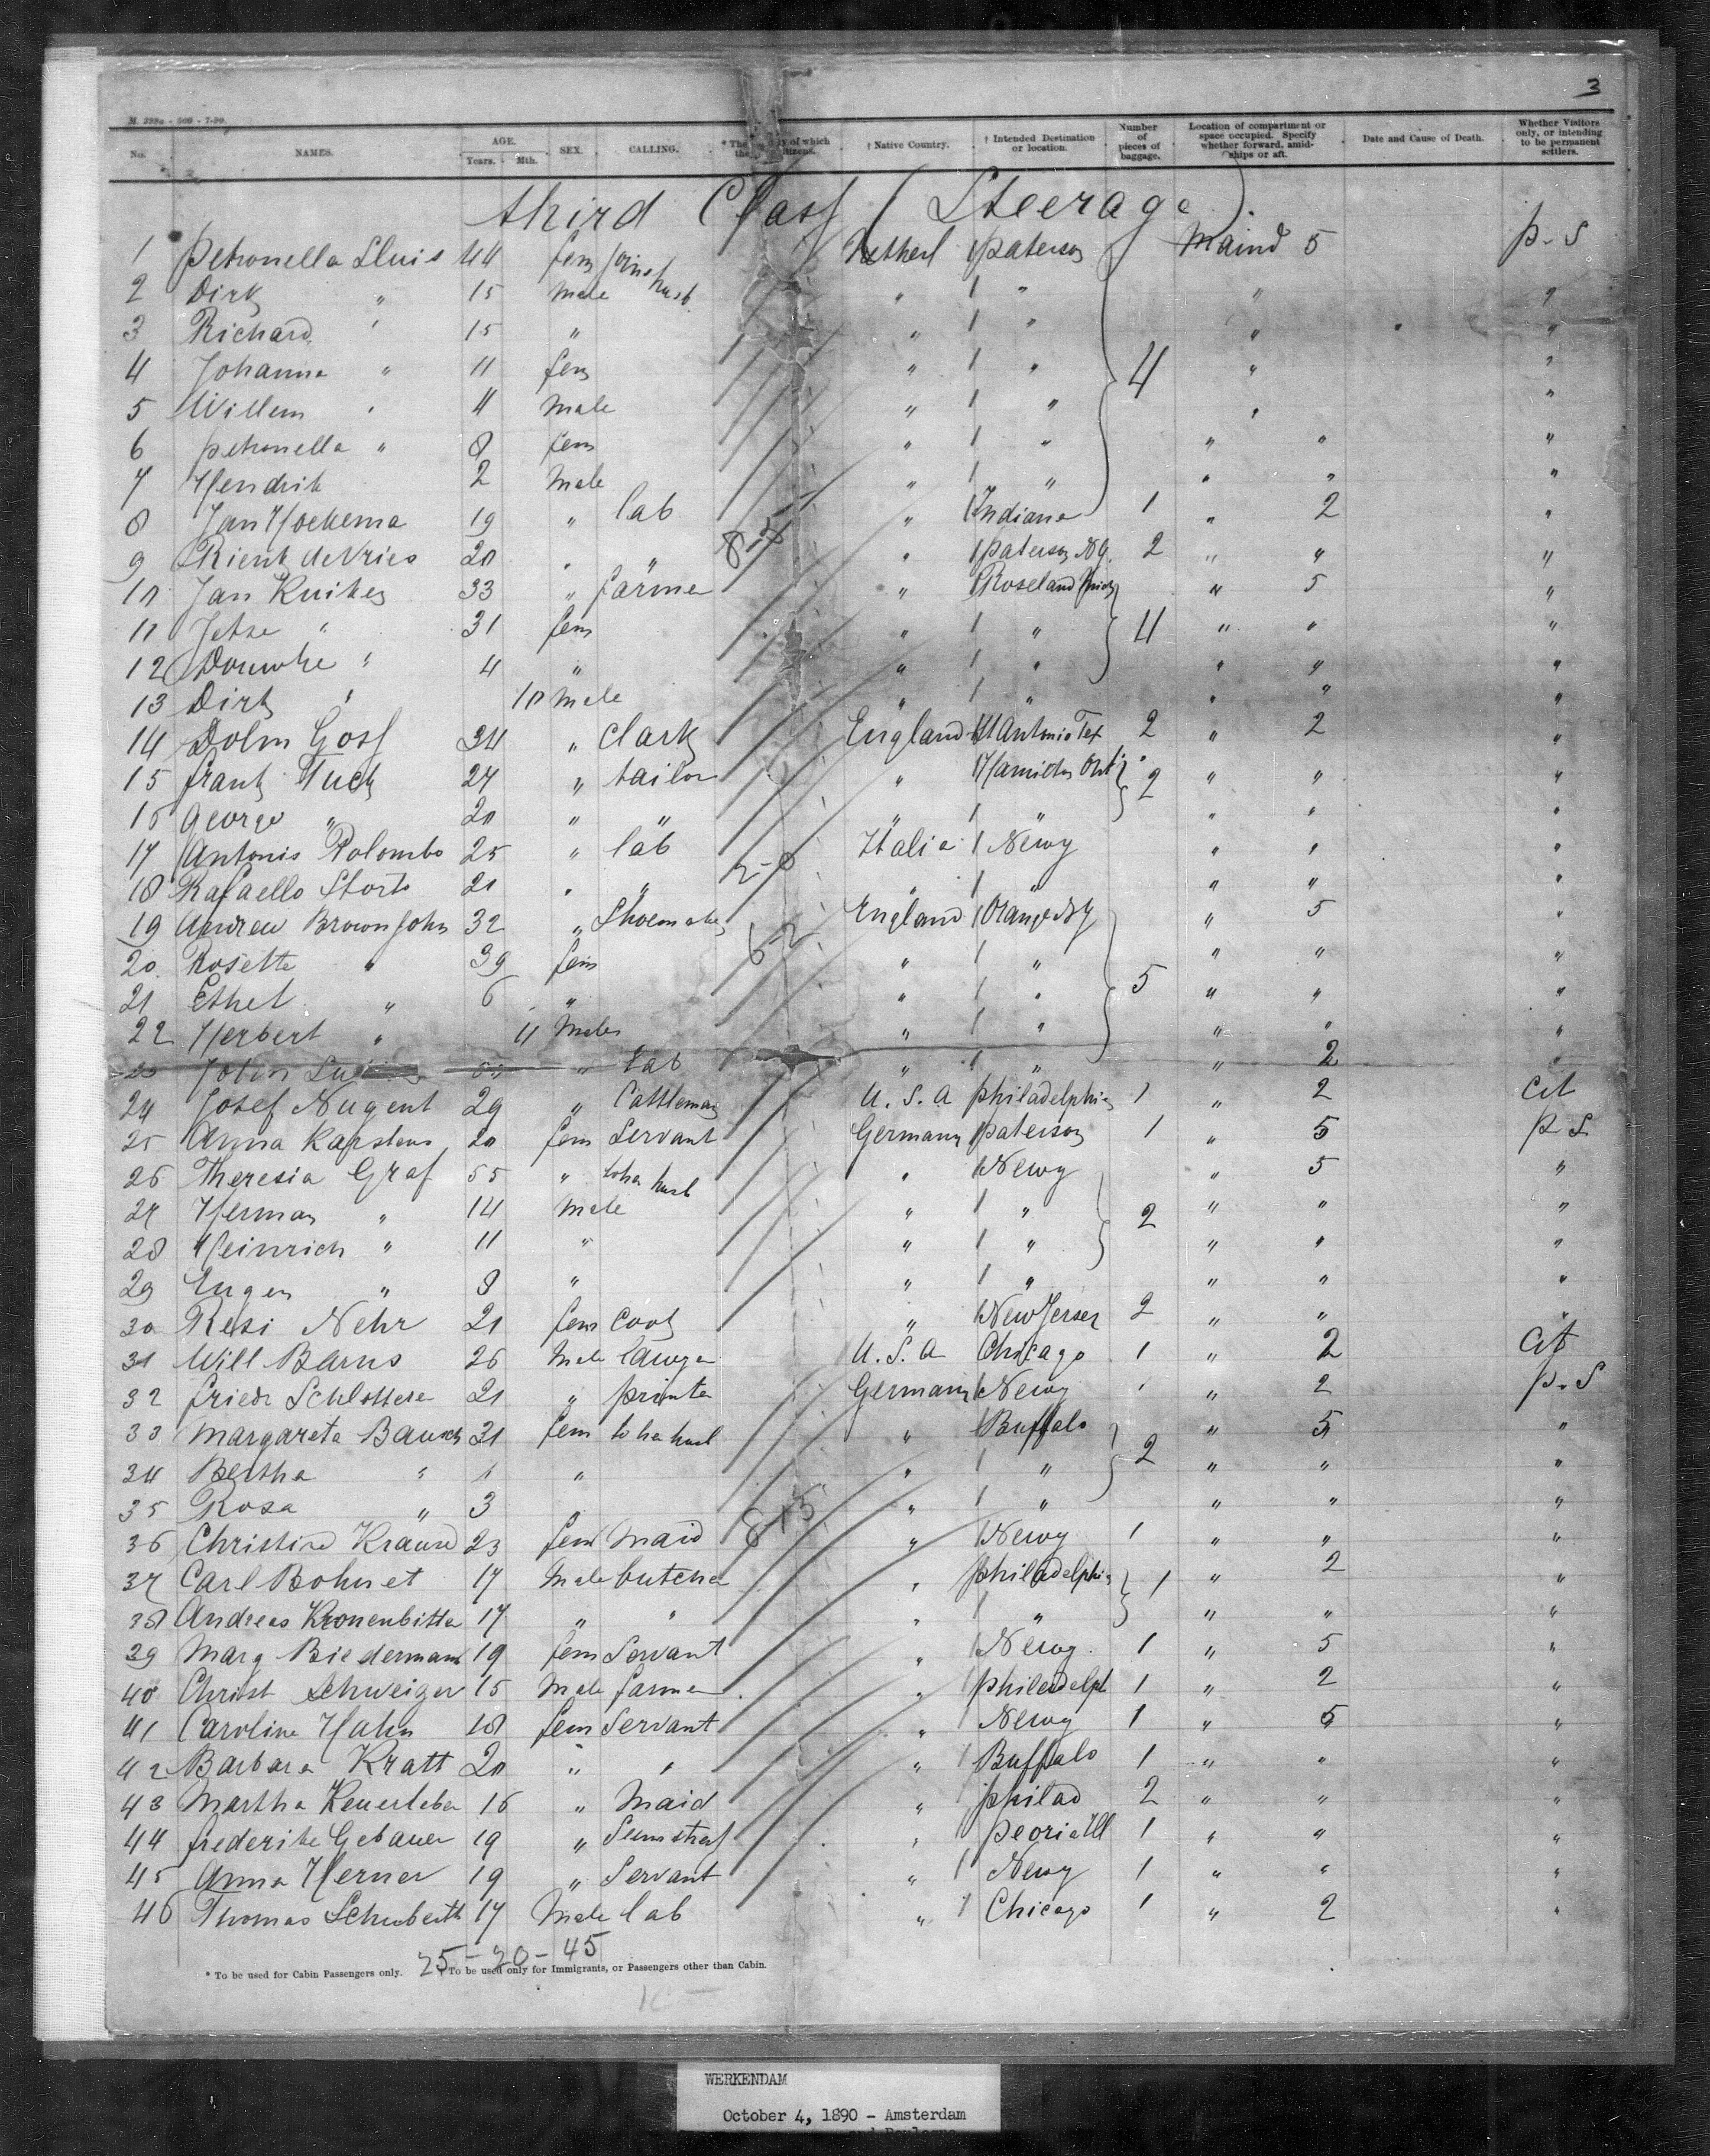 3
M. 299a - 500 - 7-90.
No. NAMES. AGE. Years. Mth. SEX. CALLING. * The of which the citizens. † Native Country. † Intended Destination or location. Number of pieces of baggage. Location of compartment or space occupied. Specify whether forward, amidships or aft. Date and Cause of Death. Whether Visitors only, or intending to be permanent settlers.
third Class (Steerage).
1 Petronella Sluis 44 fem joins husb Netherl 1 paterson Maind 5 p. S
2 Dirk " 15 male " 1 " " "
3 Richard " 15 " " 1 " " "
4 Johanna " 11 fem " 1 " 4 " "
5 Willem " 4 male " 1 " " "
6 petronella " 8 fem " 1 " " " "
7 Hendrik 2 male " 1 " " " "
8 Jan Hoekema 19 " lab " 1 Indiana 1 " 2 "
9 Rienk deVries 20 " " " 1 paterson N.J. 2 " " "
10 Jan Kuiken 33 " farmer " 1 Roseland " 5 "
11 Jetse " 31 fem " 1 " 4 " " "
12 Douwke " 4 " " 1 " " " "
13 Dirk " 10 male " 1 " " " "
14 Dolm Goss 34 " Clark England St Antonio Tex 2 " 2 "
15 frank Tuck 27 " tailor " 1 Hamilton Ont 2 " " "
16 George " 20 " " " 1 " " " "
17 Antonis Polombo 25 " lab Italia 1 Newy " " "
18 Rafaello Storto 21 " " 1 " " " "
19 Andrew Brownjohn 32 " Shoemaker England 1 Orange NY " 5 "
20 Rosette " 39 fem " 1 " " " "
21 Ethel " 6 " " 1 " 5 " " "
22 Herbert " 11 Male " 1 " " " "
23 John " lab " 1 " " 2 "
24 Josef Nugent 29 " Cattleman U.S.A philadelphia 1 " 2 Cit
25 Anna Karstens 20 fem Servant Germany 1 paterson 1 " 5 p S
26 Theresia Graf 55 " to her husb " 1 Newy " 5 "
27 Herman " 14 male " 1 " 2 " " "
28 Heinrich " 11 " " 1 " " " "
29 Eugen " 8 " " 1 " " " "
30 Resi Nehr 21 fem Cook " 1 New Jersey 2 " " "
31 Will Barns 26 Male lawyer U.S.A Chicago 1 " 2 Cit
32 friedr Schlottere 21 " printer Germany 1 Newy 1 " 2 p. S
33 Margareta Bausch 31 fem to her husb " 1 Buffalo " 5 "
34 Bertha " 1 " " 1 " 2 " " "
35 Rosa " 3 " " 1 " " " "
36 Christine Krause 23 fem Maid " 1 Newy 1 " " "
37 Carl Bohnet 17 Male butcher " philadelphia 1 " 2 "
38 Andreas Kronenbitter 17 " " " 1 " " " "
39 Marg Biedermann 19 fem Servant " 1 Newy. 1 " 5 "
40 Christ Schweiger 15 Male farmer " 1 philadelph 1 " 2 "
41 Caroline Hahn 18 fem Servant " 1 Newy 1 " 5 "
42 Barbara Kratt 20 " " " 1 Buffalo 1 " " "
43 Martha Keuerleber 16 " Maid " 1 philad 2 " " "
44 frederike Gebauer 19 " Seemstress " 1 peoria Ill 1 " " "
45 Anna Herner 19 " Servant " 1 Newy 1 " " "
46 Thomas Schuberth 17 Male lab " 1 Chicago 1 " 2 "
25 - 20 - 45
* To be used for Cabin Passengers only. † To be used only for Immigrants, or Passengers other than Cabin.
WERKENDAM
October 4, 1890 - Amsterdam
and Boulogne